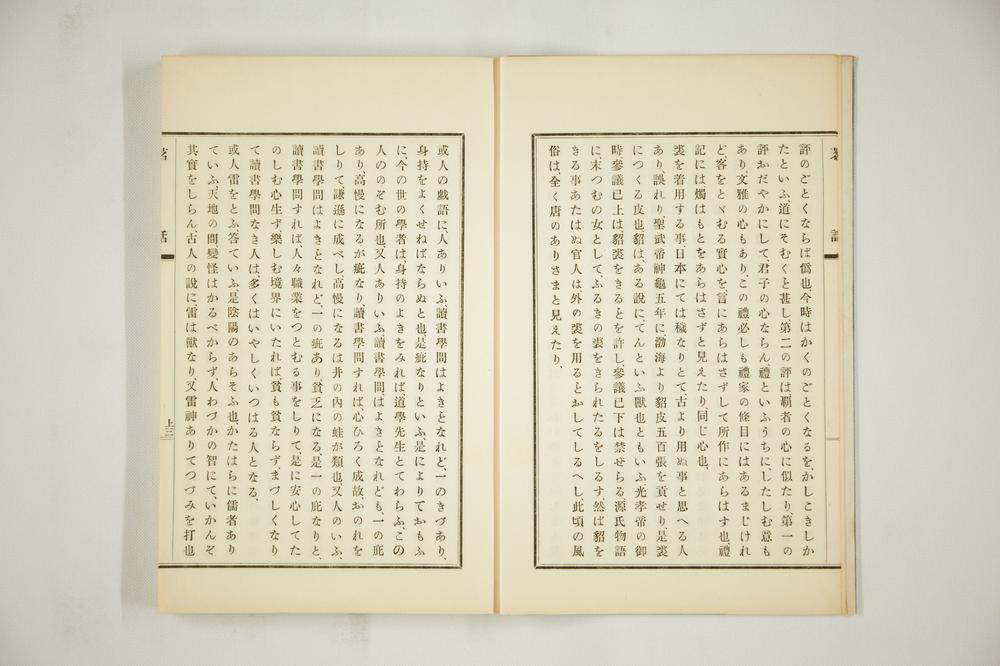 茗話
評のごとくならば僞也、今時はかくのごとくなるを、かしこきしか
たといふ、道にそむくと甚し、第二の評は、覇者の心に似たり、第一の
評おだやかにして、君子の心ならん、禮といふうちに、したしむ意も
あり、文雅の心もあり、この禮必しも禮家の條目にはあるまじけれ
ど、客をとゞむる實心を、言にあらはさずして所作にあらはす也、禮
記には燭はもとをあらはさずと見えたり、同じ心也、
裘を着用する事、日本にては穢なりとて古より用ぬ事と思へる人
あり、誤れり、聖武帝神龜五年に、渤海より貂皮五百張を貢せり、是裘
につくる皮也、貂は、ある說に、てんといふ獸也ともいふ、光孝帝の御
時參議已上は貂裘をきるとを許し、參議已下は禁せらる、源氏物語
に末つむの女として、ふるきの裘をきられたるをしるす、然ば貂を
きる事あたはぬ官人は、外の裘を用るとおしてしるへし、此頃の風
俗は、全く唐のありさまと見えたり、
或人の戲語に、人ありいふ、讀書學問はよきとなれど、一のきづあり、
身持をよくせねばならぬと也、是疵なりといふ、是によりておもふ
に、今の世の學者は、身持のよきをみれば道學先生とてわらふ、この
人ののぞむ所也、又人ありいふ讀書學問、はよきとなれども、一の庇
あり、高慢になるが疵なり、讀書學問すれば心ひろく成故、おのれを
しりて謙遜に成べし、高慢になるは井の內の蛙が類也、又人のいふ、
讀書學問はよきとなれど、一の疵あり貧乏になる、是一の庇なりと、
讀書學問すれば、人々職業をつとむる事をしりて、是に安心してた
のしむ心生ず、樂しむ境界にいたれば貧も貧ならず、まづしくなり
て讀書學問なき人は、多くはいやしくいつはる人となる、
或人雷をとふ、答ていふ、是陰陽のあらそふ也、かたはらに儒者あり
ていふ、天地の間變怪はかるべからず、人わづかの智にて、いかんぞ
其實をしらん、古人の說に、雷は獸なり又雷神ありてつづみを打也
茗話
上三